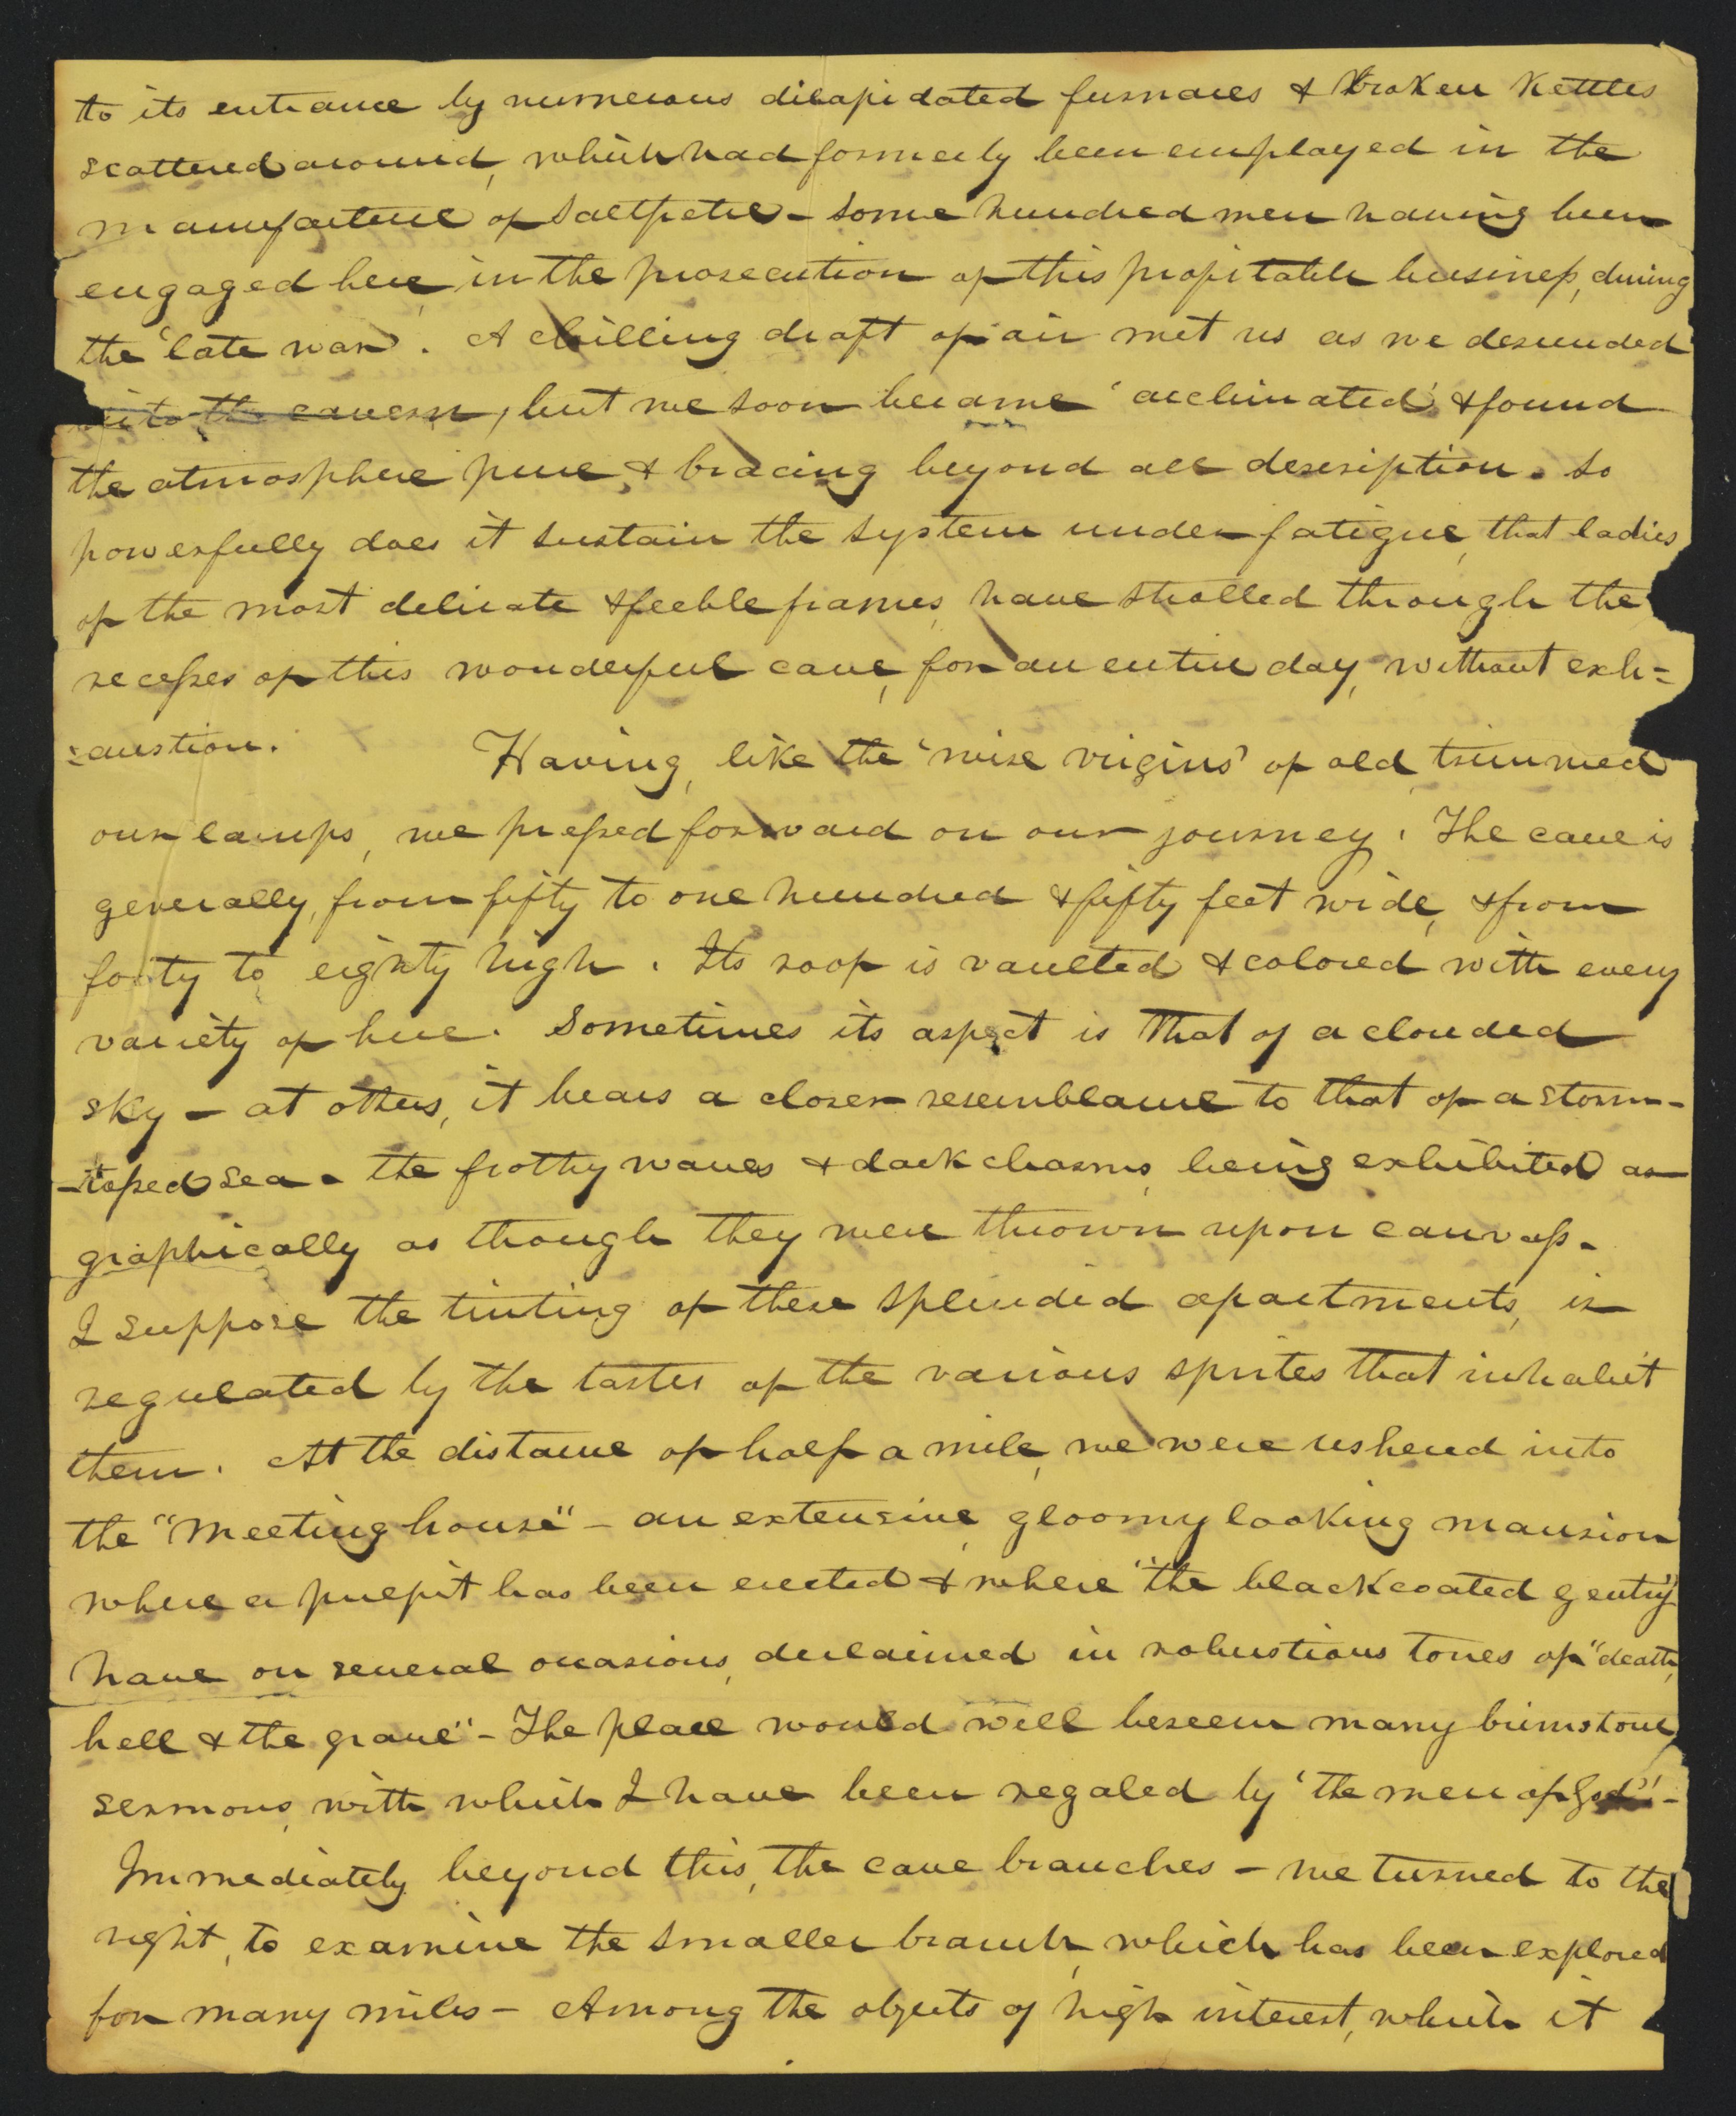 to its entrance by numerous dilapidated furnaces & broken Kettles
scattered around, which had formerly been employed in the
manufacture of Saltpetre - some hundred men having been
engaged here, in the prosecution of this profitable business, during
the 'late war'. A chilling draft of air met us as we descended
into the cavern, but we soon became 'acclimated' & found
the atmosphere pure & bracing beyond all description. So
powerfully does it sustain the system under fatigue, that ladies
of the most delicate & feeble frames, have strolled through the
recesses of this wonderful cave, for an entire day, without exh=
=austion. Having, like the 'wise virgins' of old, trimmed
our lamps, we pressed forward on our journey. The cave is
generally, from fifty to one hundred & fifty feet wide, & from
forty to eighty high. Its roof is vaulted & colored with every
variety of hue. Sometimes its aspect is that of a clouded
sky - at others, it bears a closer resemblance to that of a storm-
-tossed sea - the frothy waves & dark chasms, being exhibited as
graphically as though they were thrown upon canvass.
I suppose the tinting of these splendid apartments, is
regulated by the tastes of the various sprites that inhabit
them. At the distance of half a mile, we were ushered into
the "Meeting house" - an extensive, gloomy looking mansion
where a pulpit has been erected & where "the black coated gentry"
have on several occasions, declaimed in robustious tones of "death,
hell & the grave" - The place would well beseem many brimstone
sermons, with which I have been regaled by 'the men of God' -
Immediately beyond this, the cave branches - we turned to the
right, to examine the smaller branch, which has been explored
for many miles - Among the objects of high interest, which it